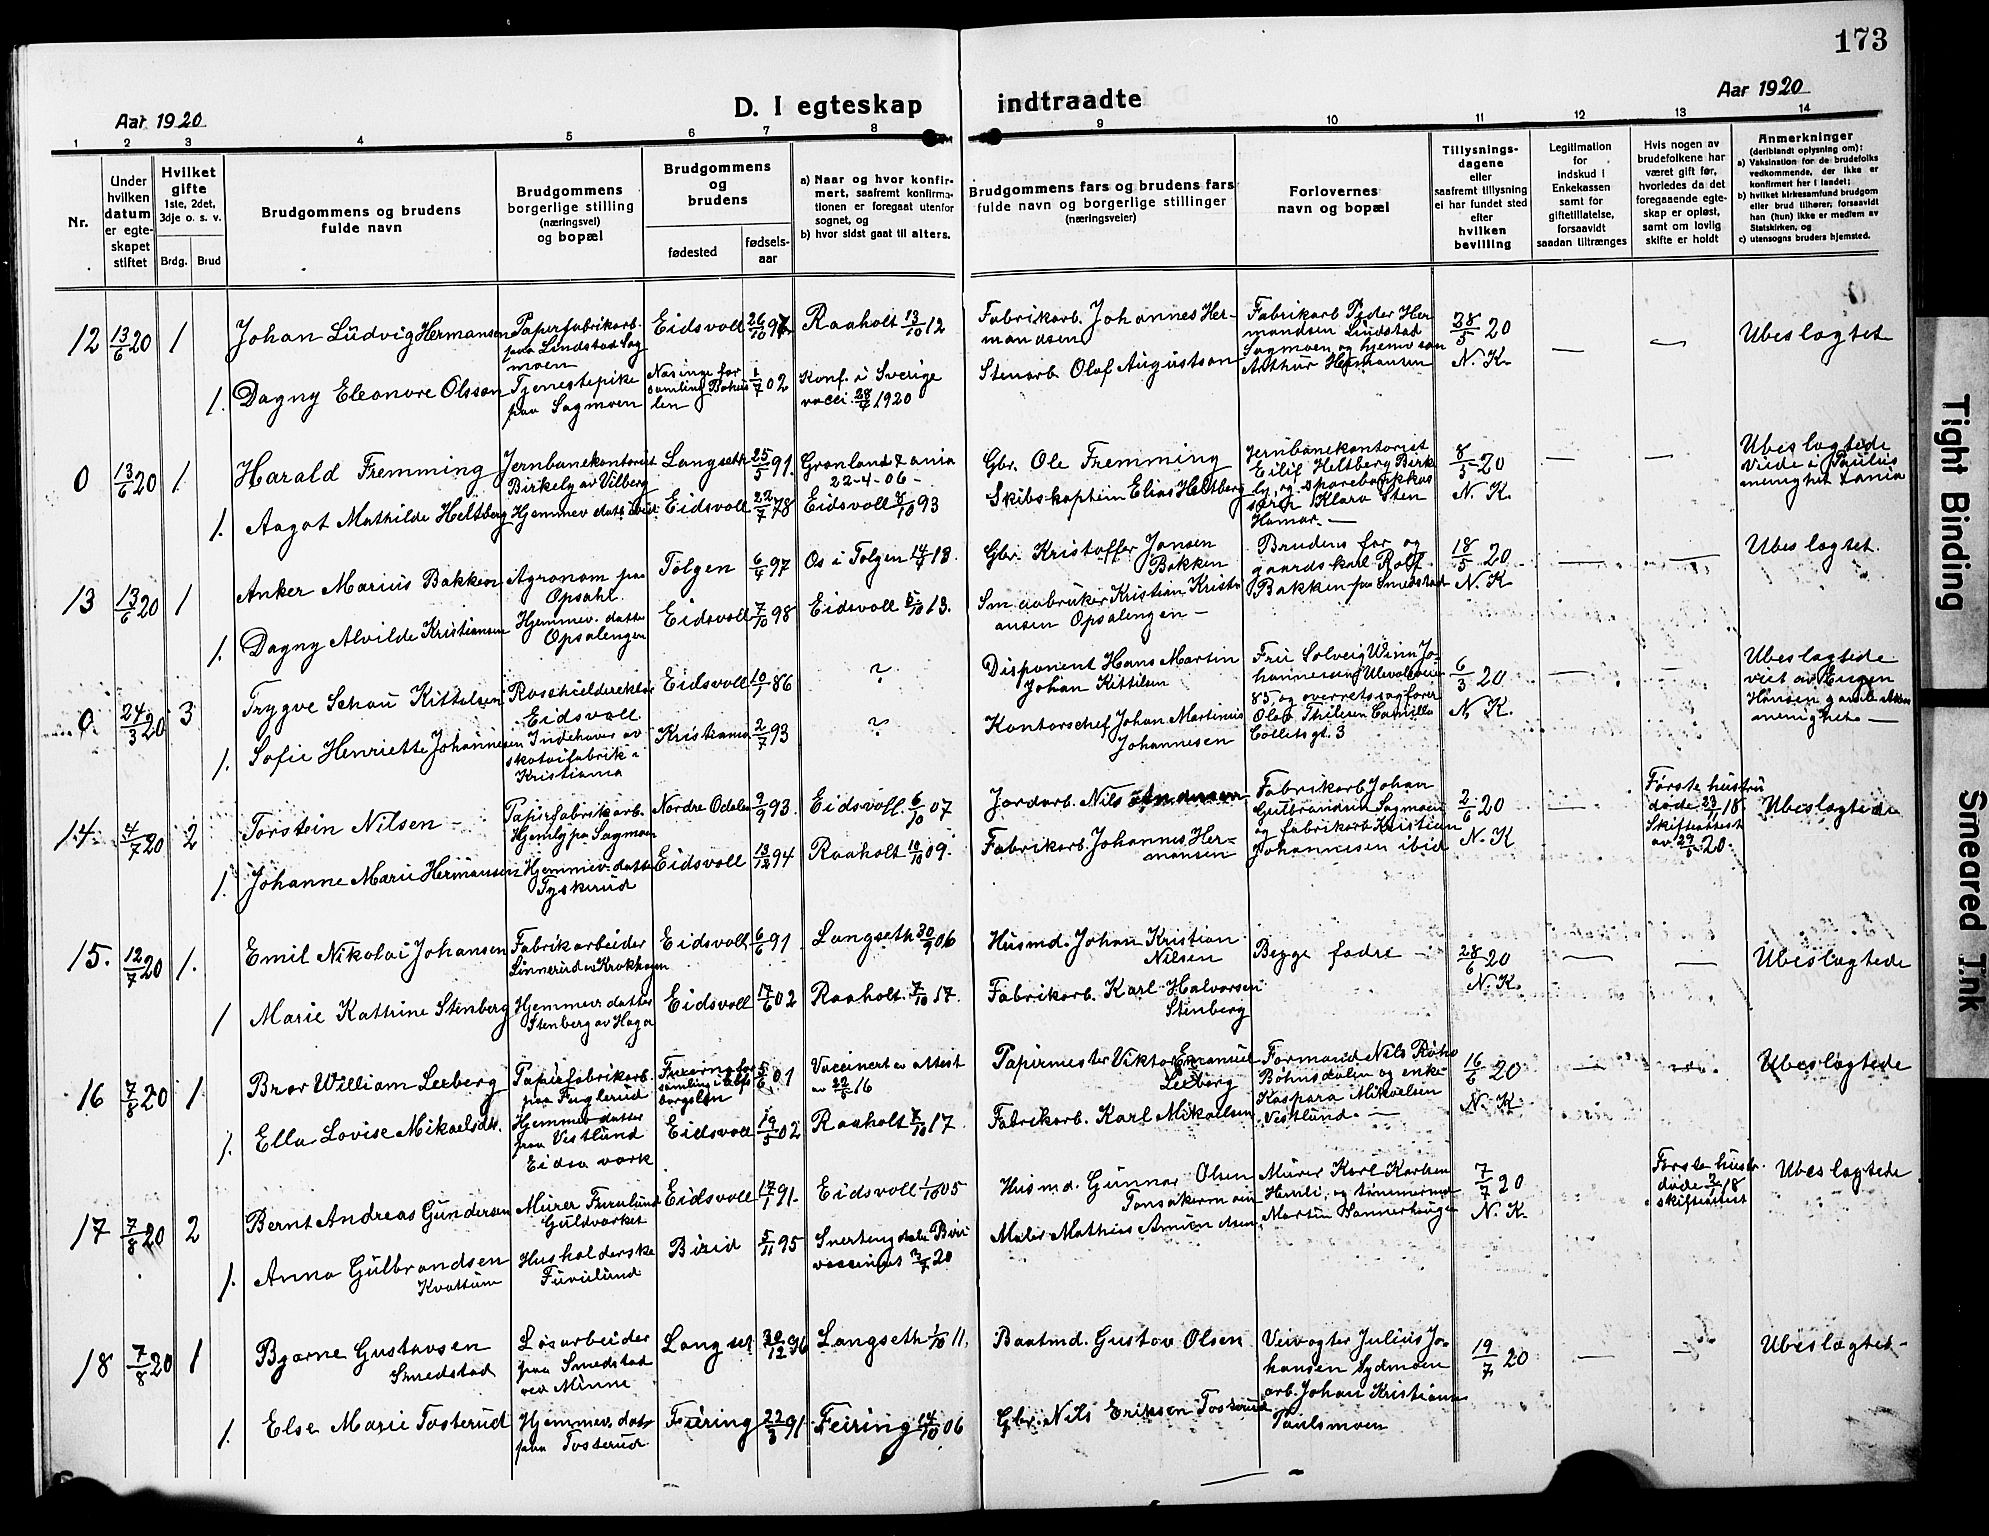 173
Aar 1920
D. I egteskap
indtraadte
Aar 1920
1 2 3 4 5 6 7 8 9 10 11 12 13 14
Nr.
Under
hvilken
datum
er egte-
skapet
stiftet
Hvilket
gifte
1ste, 2det,
3dje o. s. v.
Brdg.
Brud
Brudgommens og brudens
fulde navn
Brudgommens
borgerlige stilling
(næringsvei)
og bopæl
Brudgommens
og
brudens
fødested
fødsels-
aar
a) Naar og hvor konfir-
mert, saafremt konfirma-
tionen er foregaat utenfor
sognet, og
b) hvor sidst gaat til alters.
Brudgommens fars og brudens fars
fulde navn og borgerlige stillinger
(næringsveier)
Forlovernes
navn og bopæl
Tillysnings-
dagene
eller
saafremt tillysning
ei har fundet sted
efter
hvilken
bevilling
Legitimation
for
indskud i
Enkekassen
samt for
giftetillatelse,
forsaavidt
saadan tiltrænges
Hvis nogen av
brudefolkene har
været gift før,
hvorledes da det
foregaaende egte-
skap er opløst,
samt om lovlig
skifte er holdt
Anmerkninger
(deriblandt oplysning om):
a) Vaksination for de brudefolks
vedkommende, der ikke er
konfirmert her i landet;
b) hvilket kirkesamfund brudgom
eller brud tilhører, forsaavidt
han (hun) ikke er medlem av
Statskirken, og
c) utensogns bruders hjemsted.
12 13/6 20 1
Johan Ludvig Hermansen
Papirfabrikarb.
paa Lindstad Sag
moen
Eidsvoll 26/10 97
Raaholt 13/10 12
Fabrikarb. Johannes Her-
mandsen
Fabrikarb Peder Her
mandsen Lindstad
Sagmoen og hjemv søn
Arthur Hermansen
28/5 20
N. K.
Ubeslagtet
1. Dagny Eleonore Olsson
Tjenestepike
paa Sagmoen
Nasinge for
samling Bohus
len
1/7 02
Konf. i Sverige
vacci. 28/4 1920
Stenarb. Olof Augustson
0 13/6 20 1
Harald Fremming
Jernbanekontorist
Birkely av Vilberg
Langseth 25/5 91.
Grønland Xania
22-4-06-
Gbr. Ole Fremming
Jernbanekontorist
Eilif Heltberg Birke
ly, og sparebankkas
serer Klara Sten
Hamar.
8/5 20
N. K.
Ubeslagtede
Viede i Paulus
menighet Xania
1. Aagot Mathilde Heltberg
Hjemmev datt ibid.
Eidsvoll 22/7 78
Eidsvoll 8/10 93
Skibskaptein Elias Heltberg
13 13/6 20 1
Anker Marius Bakken
Agronom paa
Opsahl.
Tolgen 6/4 97
Os i Tolgen 14/4 13.
Gbr. Kristoffer Jonsen
Bakken
Brudens far og
gaardskarl Rolf
Bakken paa Smedstad
18/5 20
N. K
Ubeslagtet.
1. Dagny Alvilde Kristiansen
Hjemmev. datter
Opsalengen
Eidsvoll 7/10 98
Eidsvoll 5/10 13.
Smaabruker Kristian Kristi
ansen Opsalengen
0. 24/3 20 3
Trygve Schou Kittelsen
Roschieldereklos
Eidsvoll
Eidsvoll 10/1 86
?
Disponent Hans Martin
Johan Kittilsen
Fru Solveig Winn Jo-
hannesen, Ulevalsveien
85 og overretssagfører
Olaf Thilesen Camilla
Collets gt. 3
6/3 20
N. K.
Ubeslagtede
viet av Eugen
Hansen gamle Akers
menighet
1. Sofie Henriette Johannesen
Indehaver av
skotøifabrik i
Kristiania
Kristiania 2/7 93
?
Kontorschef Johan Martinius
Johannesen
14. 4/7 20 2
Torstein Nilsen
Papirfabrikarb.
Hjemly paa Sagmoen
Nordre Odalen 9/9 93.
Eidsvoll. 6/10 07
Jordarb. Nils
Fabrikarb Johan
Gulbrandsen Sagmoen
og fabrikarb Kristian
Johannesen ibid
2/6 20
N. K
Første hustru
døde 23/11 18.
Skifteattest
av 29/5 20.
Ubeslagtede
1. Johanne Marie Hermansen
Hjemmev. datter
Tyskerud
Eidsvoll 13/12 94
Raaholt 10/10 09.
Fabrikarb. Johannes Her-
mansen
15. 12/7 20 1.
Emil Nikolai Johansen
Fabrikarbeider
Linnerud av Krokhagen
Eidsvoll 6/6 91
Langseth 30/9 06
Husmd. Johan Kristian
Nilsen
Begge fædre
28/6 20
N. K.
Ubeslagtede
1 Marie Kathrine Stenberg
Hjemmev. datter
Stenberg av Haga
Eidsvoll 17/6 02
Raaholt. 7/10 17.
Fabrikarb. Karl Halvorsen
Stenberg
16 7/8 20 1
Bror William Leeberg
Papirfabrikarb.
paa Fuglerud
samling i Elfs
borgslen
5/6 01
Vaccinert ev attest
av 22/5 16
Papirmester Viktor Emanuel
Leeberg
Formand Nils Røhr
Bøhnsdalen og enke
Kaspara Mikaelsen
Vestlund.
16/6 20
N. K
Ubeslagtede
1. Ella Lovise Mikaelsdtr.
Hjemmev. datter
paa Vestlund
Eidsa værk
Eidsvoll 19/5 02
Raaholt 7/10 17.
Fabrikarb. Karl Mikaelsen
17 7/8 20 2
Bernt Andreas Gundersen
Murer Furulund
Guldværket
Eidsvoll 17/1 91.
Eidsvoll 1/10 05
Husmd. Gunnar Olsen
Murer Karl Karlsen
Henli, og tømmermd
Martin Sannerhaugen
7/7 20
N. K.
Første hustr.
døde 2/1 18
skifteattest
Ubeslagtede
1. Anna Gulbrandsen
Kvattum
Husholderske
Furulund
Birid 5/11 95
Snertingdalen Biri
vaccinert 3/7 20
Maler Mathias Amundsen.
18 7/8 20 1
Bjarne Gustavsen
Smedstad
Løsarbeider
paa Smedstad
ved Minne
Langset 30/12 96
Langseth 1/10 11.
Baatmd. Gustav Olsen
Veivogter Julius Jo-
hansen Sydmoen
arb. Johan Kristians
Paulsmoen
19/7 20
Ubeslagtet
1. Else Marie Tosterud
Hjemmev. datr
paa Tosterud
Feiring 22/3 91
Feiring 14/10 06
Gbr. Nils Eriksen Tosterud
Tight Binding
Smeared Ink